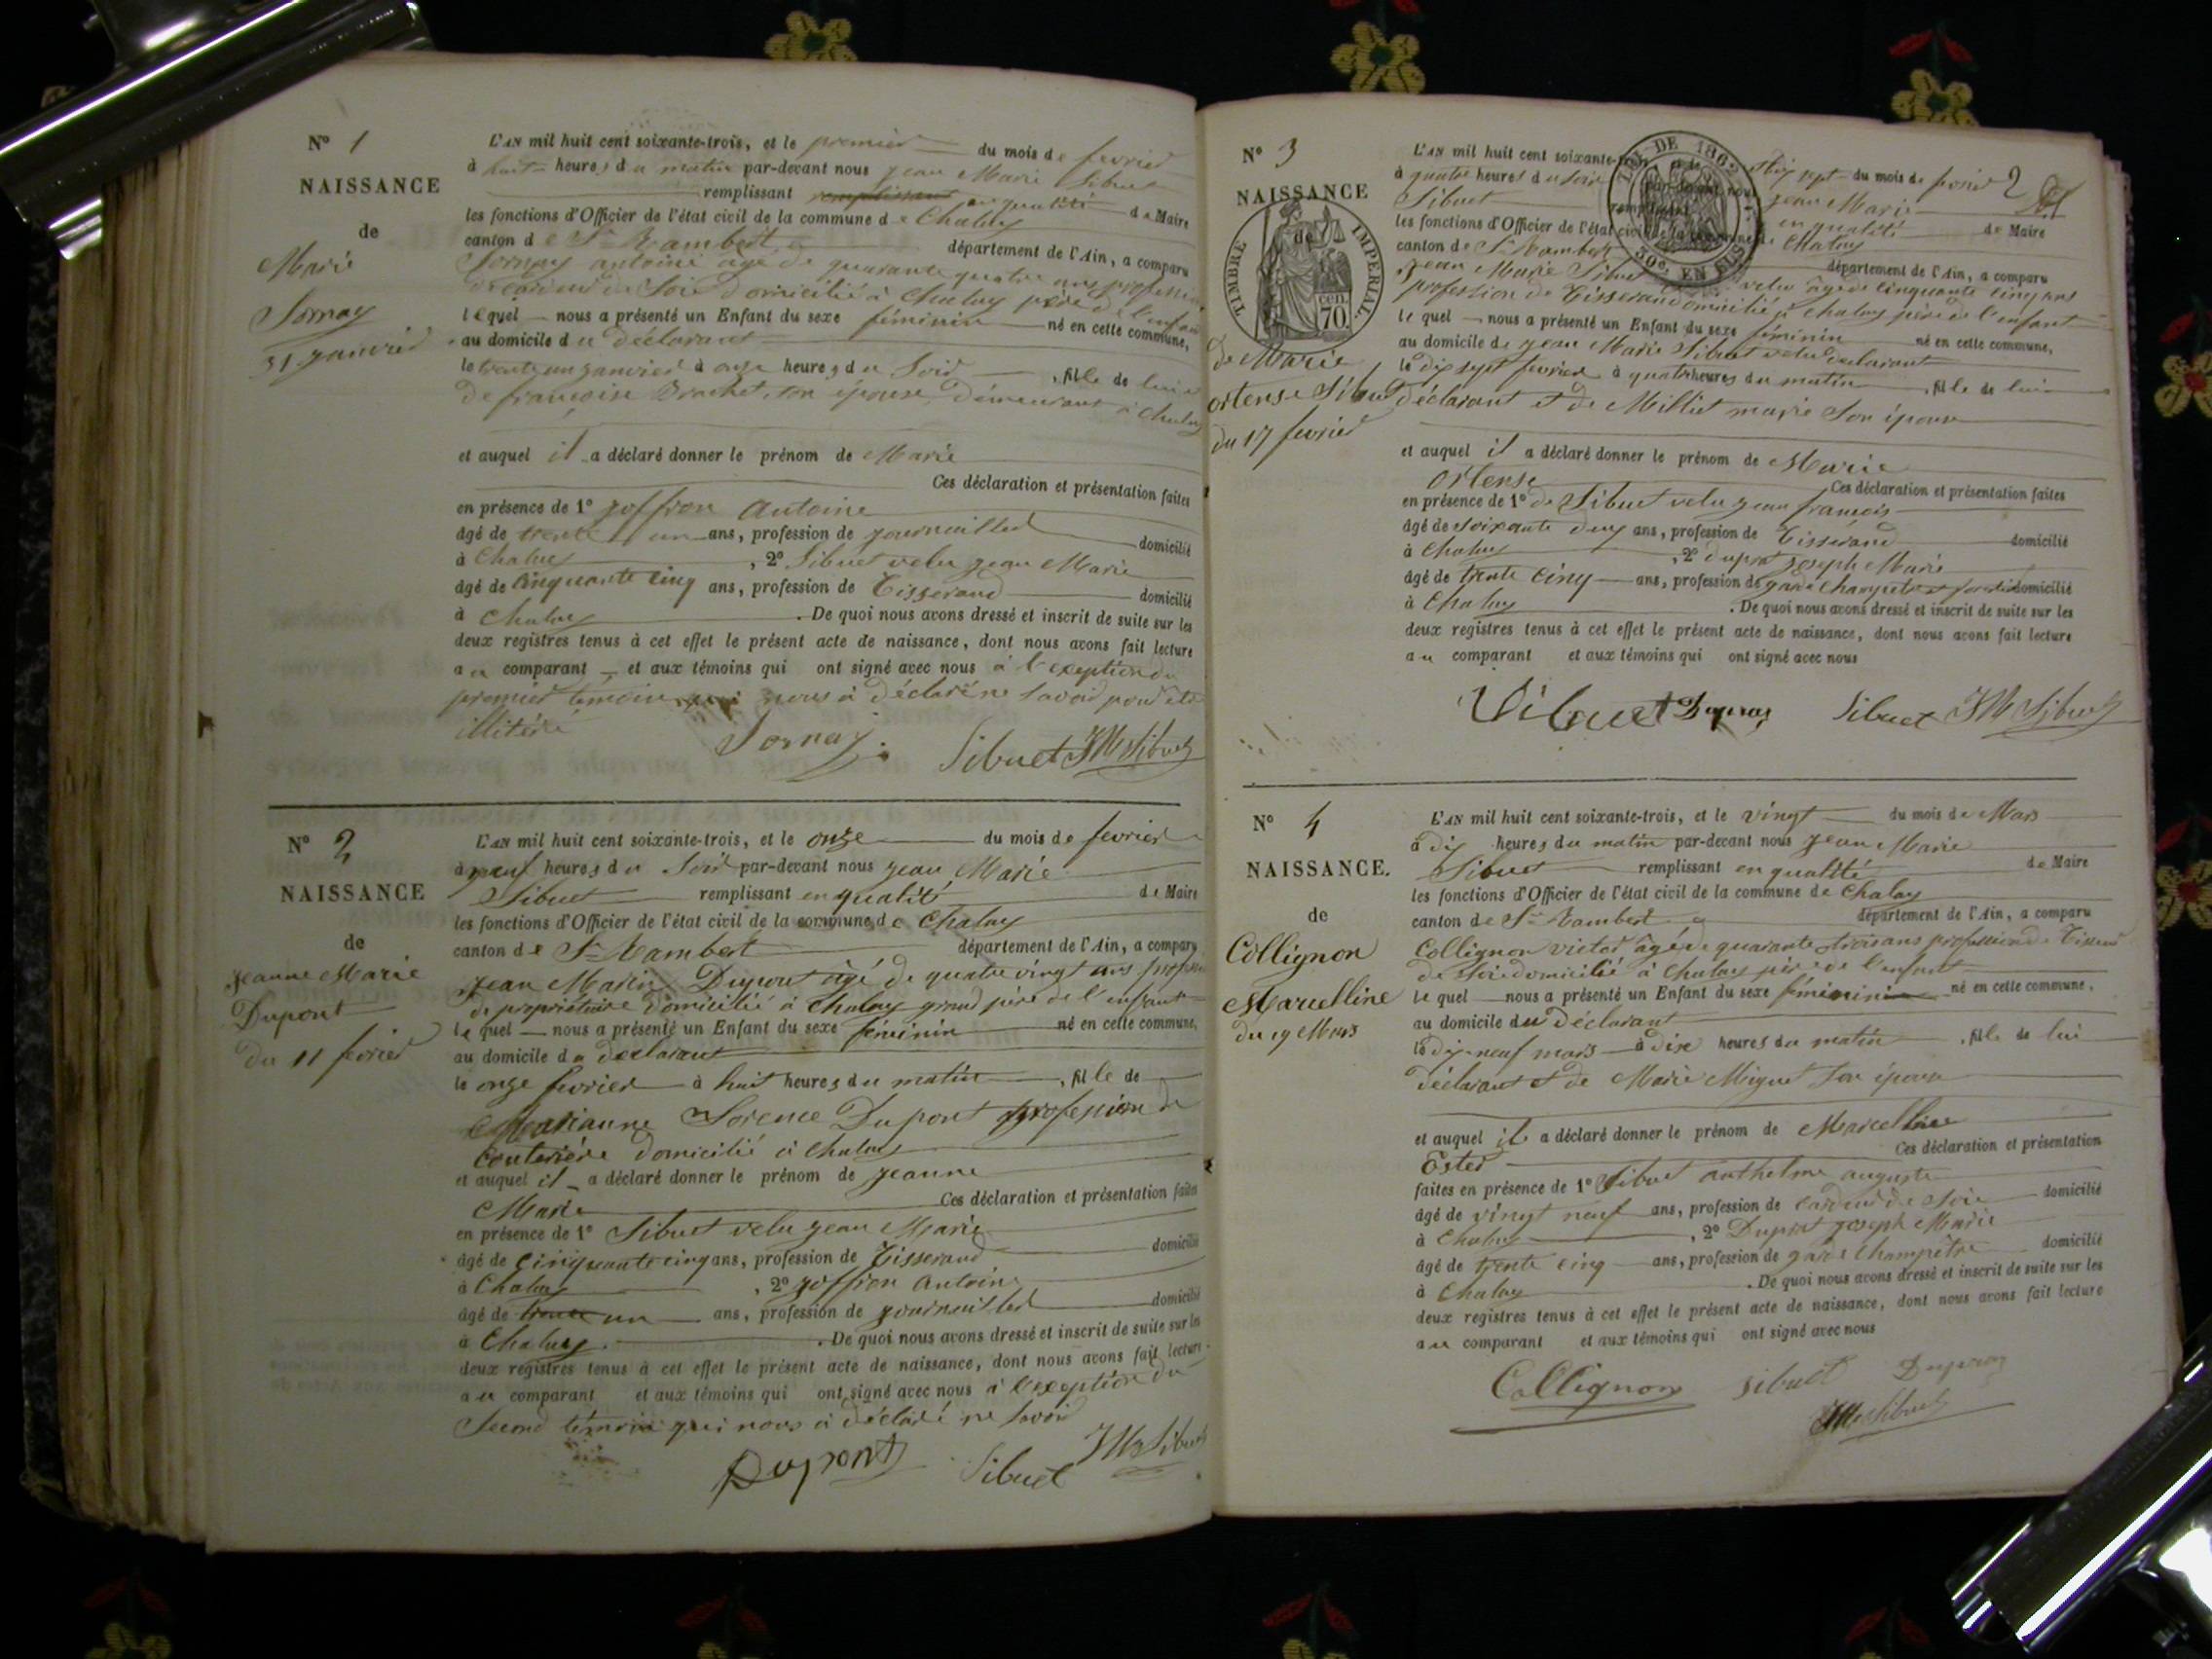 N° 1
NAISSANCE
de
Marie
Sornay
31 janvier
L'AN mil huit cent soixante-trois, et le premier du mois de fevrier
à huit heures du matin par-devant nous jean Marie Sibuet
remplissant remplissant en qualité de Maire
les fonctions d'Officier de l'état civil de la commune de Chaley
canton de St Rambert département de l'Ain, a comparu
Sornay antoine agé de quarante quatre ans profession
de cardeur de Soie domicilié à Chaley père de l'enfant
lequel nous a présenté un Enfant du sexe féminin né en cette commune,
au domicile du déclarant
le trente un janvier à onze heures du Soir , fille de lui et
de françoise Brachet, son épouse, demeurant à Chaley
et auquel il a déclaré donner le prénom de Marie
Ces déclaration et présentation faites
en présence de 1° joffron Antoine
âgé de trente un ans, profession de journailler domicilié
à Chaley , 2° Sibuet velu jean Marie
âgé de cinquante cinq ans, profession de Tisserand domicilié
à Chaley . De quoi nous avons dressé et inscrit de suite sur les
deux registres tenus à cet effet le présent acte de naissance, dont nous avons fait lecture
au comparant et aux témoins qui ont signé avec nous à l'exeption du
premier temoin qui nous à déclaré ne savoir pour être
illitéré
Sornay Sibuet JM Sibuet
N° 2
NAISSANCE
de
jeanne Marie
Dupont
du 11 fevrier
L'AN mil huit cent soixante-trois, et le onze du mois de fevrier
à neuf heures du Soir par-devant nous jean Marie
Sibuet remplissant en qualité de Maire
les fonctions d'Officier de l'état civil de la commune de Chaley
canton de St Rambert département de l'Ain, a comparu
jean Marie Dupont âgé de quatre vingt ans profession
de propriétaire domicilié à Chaley grand père de l'enfant
lequel nous a présenté un Enfant du sexe féminin né en cette commune,
au domicile du declarant
le onze fevrier à huit heures du matin , fille de
Marianne Dupont profession de
Couterière domicilié à Chaley
et auquel il a déclaré donner le prénom de jeanne
Marie Ces déclaration et présentation faites
en présence de 1° Sibuet velu jean Marie
âgé de cinquante cinq ans, profession de Tisserand domicilié
à Chaley , 2° joffron Antoine
âgé de trente un ans, profession de journailler domicilié
à Chaley . De quoi nous avons dressé et inscrit de suite sur les
deux registres tenus à cet effet le présent acte de naissance, dont nous avons fait lecture
au comparant et aux témoins qui ont signé avec nous à l'exeption du
Second témoin qui nous à déclaré ne savoir
Dupont Sibuet JM Sibuet
2
N° 3
NAISSANCE
de
TIMBRE IMPERIAL
70 cen.
de Marie
ortense Sibuet
du 17 fevrier
DE 1862
50c. EN SUS
L'AN mil huit cent soixante-trois, et le dix sept du mois de fevrier
à quatre heures du soir par-devant nous jean Marie
Sibuet remplissant en qualité de Maire
les fonctions d'Officier de l'état civil de la commune de Chaley
canton de St Rambert département de l'Ain, a comparu
jean Marie Sibuet velu âgé de cinquante cinq ans
profession de Tisserand domicilié à Chaley père de l'enfant
lequel nous a présenté un Enfant du sexe féminin né en cette commune,
au domicile de jean Marie Sibuet velu declarant
le dix sept fevrier à quatre heures du matin , fille de lui
déclarant et de Milliet marie Son épouse
et auquel il a déclaré donner le prénom de Marie
Ortense Ces déclaration et présentation faites
en présence de 1° de Sibuet velu jean françois
âgé de soixante deux ans, profession de Tisserand domicilié
à Chaley , 2° Dupraz joseph Marie
âgé de trente cinq ans, profession de garde champetre et forestier domicilié
à Chaley . De quoi nous avons dressé et inscrit de suite sur les
deux registres tenus à cet effet le présent acte de naissance, dont nous avons fait lecture
au comparant et aux témoins qui ont signé avec nous
Sibuet Dupraz Sibuet JM Sibuet
N° 4
NAISSANCE.
de
Collignon
Marcelline
du 19 Mars
L'AN mil huit cent soixante-trois, et le vingt du mois de Mars
à dix heures du matin par-devant nous jean Marie
Sibuet remplissant en qualité de Maire
les fonctions d'Officier de l'état civil de la commune de Chaley
canton de St Rambert département de l'Ain, a comparu
Collignon victor âgé de quarante trois ans profession de Tisseur
de Soie domicilié à Chaley père de l'enfant
lequel nous a présenté un Enfant du sexe féminin né en cette commune,
au domicile du déclarant
le dix-neuf mars à dix heures du matin , fille de lui
déclarant et de Marie Miguet Son épouse
et auquel il a déclaré donner le prénom de Marcelline
Ester Ces déclaration et présentation
faites en présence de 1° Sibuet anthelme auguste
âgé de vingt neuf ans, profession de cardeur de Soie domicilié
à Chaley , 2° Dupraz joseph Marie
âgé de trente cinq ans, profession de garde Champêtre domicilié
à Chaley . De quoi nous avons dressé et inscrit de suite sur les
deux registres tenus à cet effet le présent acte de naissance, dont nous avons fait lecture
au comparant et aux témoins qui ont signé avec nous
Collignon Sibuet Dupraz
JM Sibuet